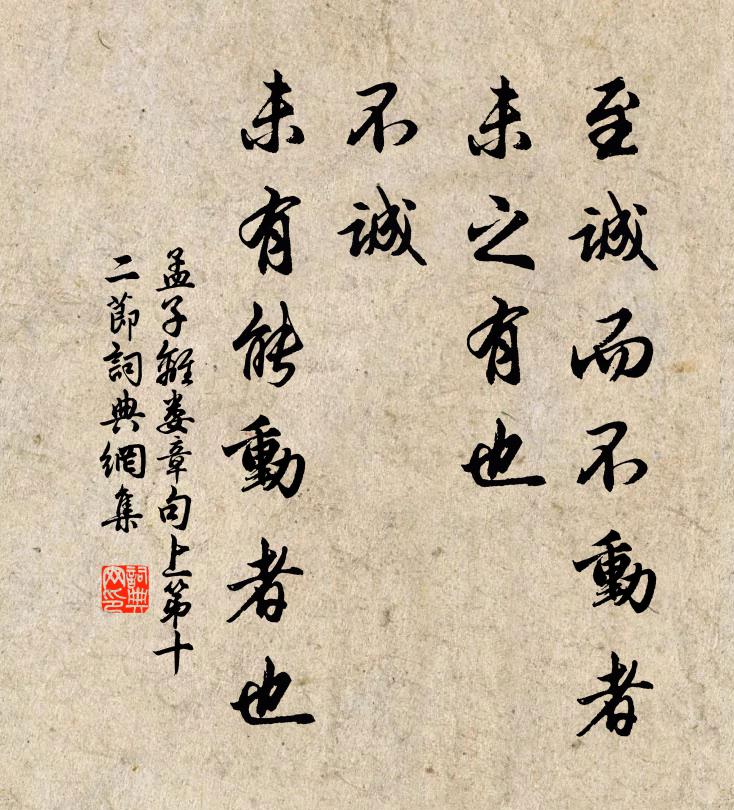 至誠而不動者
未之有也
不誠
未有能動者也
孟子離娄章句上第十
二節詞典網集
詞典
网印